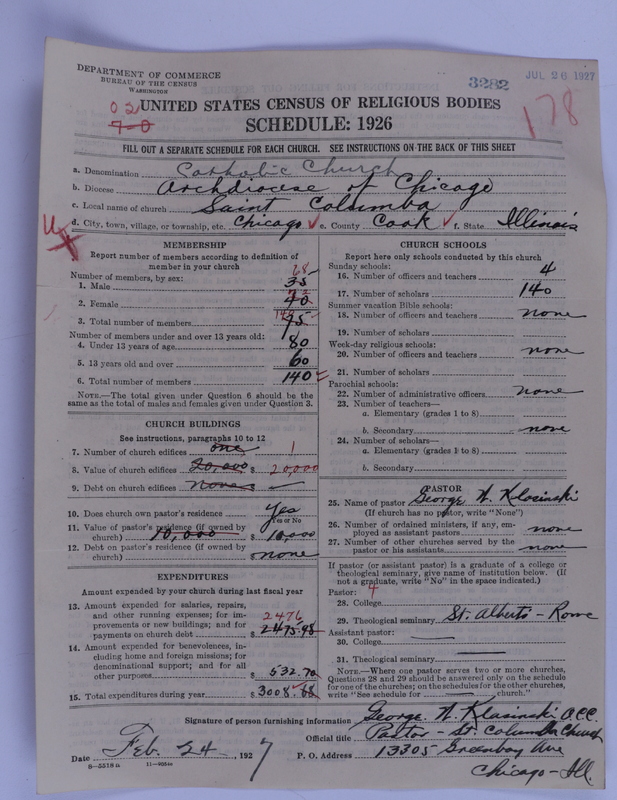 DEPARTMENT OF COMMERCE
BUREAU OF THE CENSUS
WASHINGTON
3282
JUL 26 1927
178
02
7-0
UNITED STATES CENSUS OF RELIGIOUS BODIES
SCHEDULE: 1926
FILL OUT A SEPARATE SCHEDULE FOR EACH CHURCH. SEE INSTRUCTIONS ON THE BACK OF THIS SHEET
a. Denomination Catholic Church
b. Diocese Archdiocese of Chicago
c. Local name of church Saint Columba
d. City, town, village, or township, etc. Chicago e. County Cook f. State Illinois
MEMBERSHIP
Report number of members according to definition of
member in your church
Number of members, by sex:
1. Male 35 68
2. Female 40 72
3. Total number of members 75 140
Number of members under and over 13 years old:
4. Under 13 years of age 80
5. 13 years old and over 60
6. Total number of members 140
NOTE.—The total given under Question 6 should be the
same as the total of males and females given under Question 3.
CHURCH BUILDINGS
See instructions, paragraphs 10 to 12
7. Number of church edifices one 1
8. Value of church edifices 20,000 $ 20,000
9. Debt on church edifices none $ —
10. Does church own pastor's residence? Yes
Yes or No
11. Value of pastor's residence (if owned by
church) 10,000 $ 10,000
12. Debt on pastor's residence (if owned by
church) $ none
EXPENDITURES
Amount expended by your church during last fiscal year
13. Amount expended for salaries, repairs,
and other running expenses; for im-
provements or new buildings; and for
payments on church debt $ 2475.98 2476
14. Amount expended for benevolences, in-
cluding home and foreign missions; for
denominational support; and for all
other purposes $ 532.70
15. Total expenditures during year $ 3008.68
CHURCH SCHOOLS
Report here only schools conducted by this church
Sunday schools:
16. Number of officers and teachers 4
17. Number of scholars 140
Summer vacation Bible schools:
18. Number of officers and teachers none
19. Number of scholars
Week-day religious schools:
20. Number of officers and teachers none
21. Number of scholars
Parochial schools:
22. Number of administrative officers none
23. Number of teachers—
a. Elementary (grades 1 to 8)
b. Secondary none
24. Number of scholars—
a. Elementary (grades 1 to 8)
b. Secondary
PASTOR
25. Name of pastor George A. Klasinski
(If church has no pastor, write "None")
26. Number of ordained ministers, if any, em-
ployed as assistant pastors none
27. Number of other churches served by the
pastor or his assistants none
If pastor (or assistant pastor) is a graduate of a college or
theological seminary, give name of institution below. (If
not a graduate, write "No" in the space indicated.)
Pastor: 4
28. College
29. Theological seminary St. Alberts - Rome
Assistant pastor:
30. College
31. Theological seminary
NOTE.—Where one pastor serves two or more churches,
Questions 28 and 29 should be answered only on the schedule
for one of the churches; on the schedules for the other churches,
write "See schedule for church."
Signature of person furnishing information George A. Klasinski O.C.C.
Official title Pastor - St. Columba Church
Date Feb. 24 1927 P. O. Address 13305 Greenbay Ave
8-5518 a
Chicago - Ill.